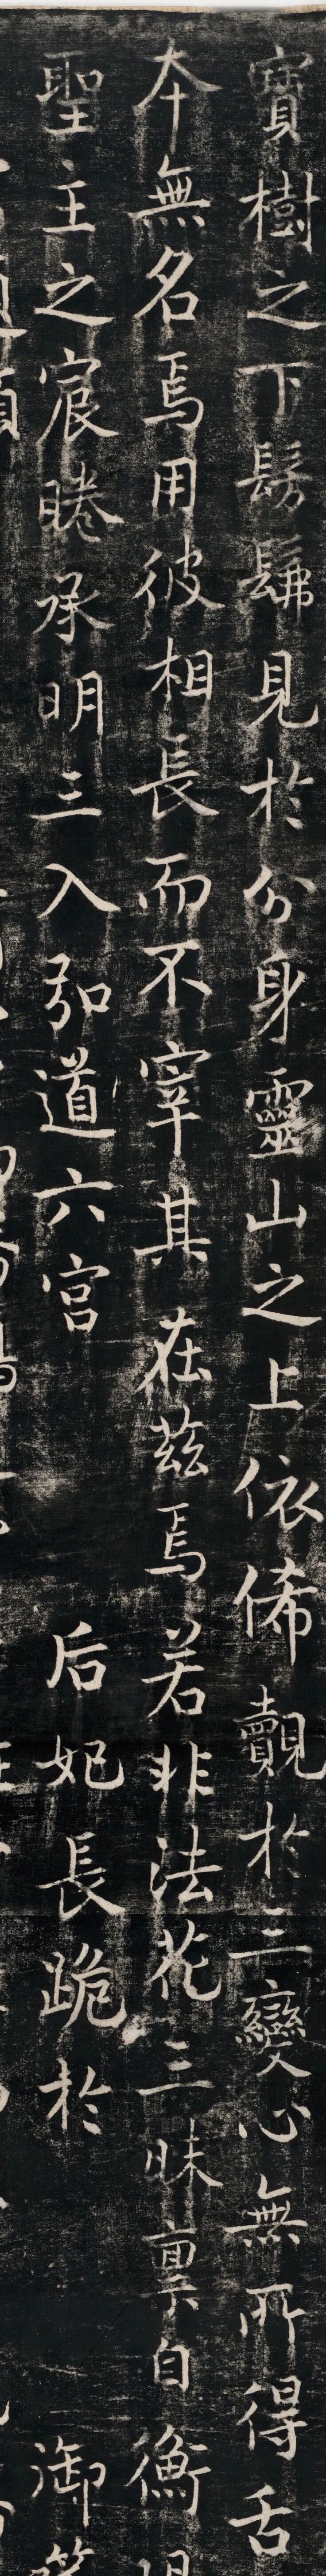 寶樹之下髣髴見於分身靈山之上依俙覿於三變心無所得舌
本無名焉用彼相長而不宰其在茲焉若非法花三昧禀自衡
聖主之宸睠承明三入弘道六宮 后妃長跪於 御